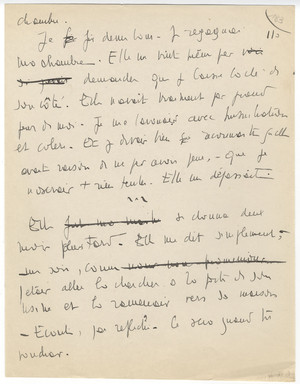 chambre.
110
Je fis demi-tour. Je regagnai
ma chambre. Elle ne vint même pas
demander que je laisse la clé de
son côté. Elle n'avait vraiment pas
peur de moi. Je me l'avouai avec humiliation
et colère. Et je dois
avait raison de ne pas avoir peur, - que je
n'oserais rien tenter. Elle me dépassait.
Elle se donna deux
mois plus tard. Elle me dit simplement,
un soir, comme
j'étais allé la chercher à la porte de son
usine et la ramenais vers sa maison
- Ecoute, j'ai réfléchi. Ce sera quand tu
voudras.